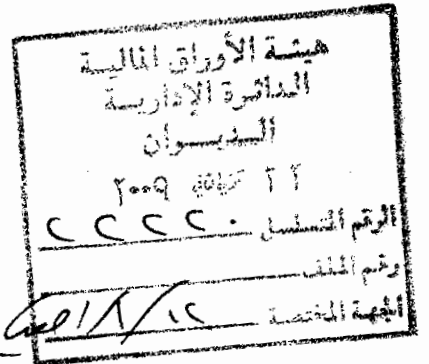 هيئة الأوراق المالية
الدائرة الإدارية
الديوان
٢٢ ٢٠٠٩
الرقم المتسلسل ٢٢٢٢٠
رقم الملف
الجهة المختصة ١٢/٨/